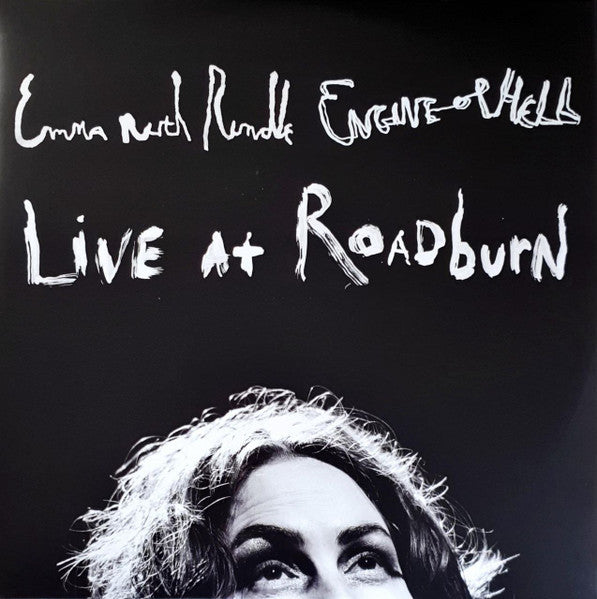 Emma Ruth Rundle ENGINE of HELL
LiVE At ROADbuRN